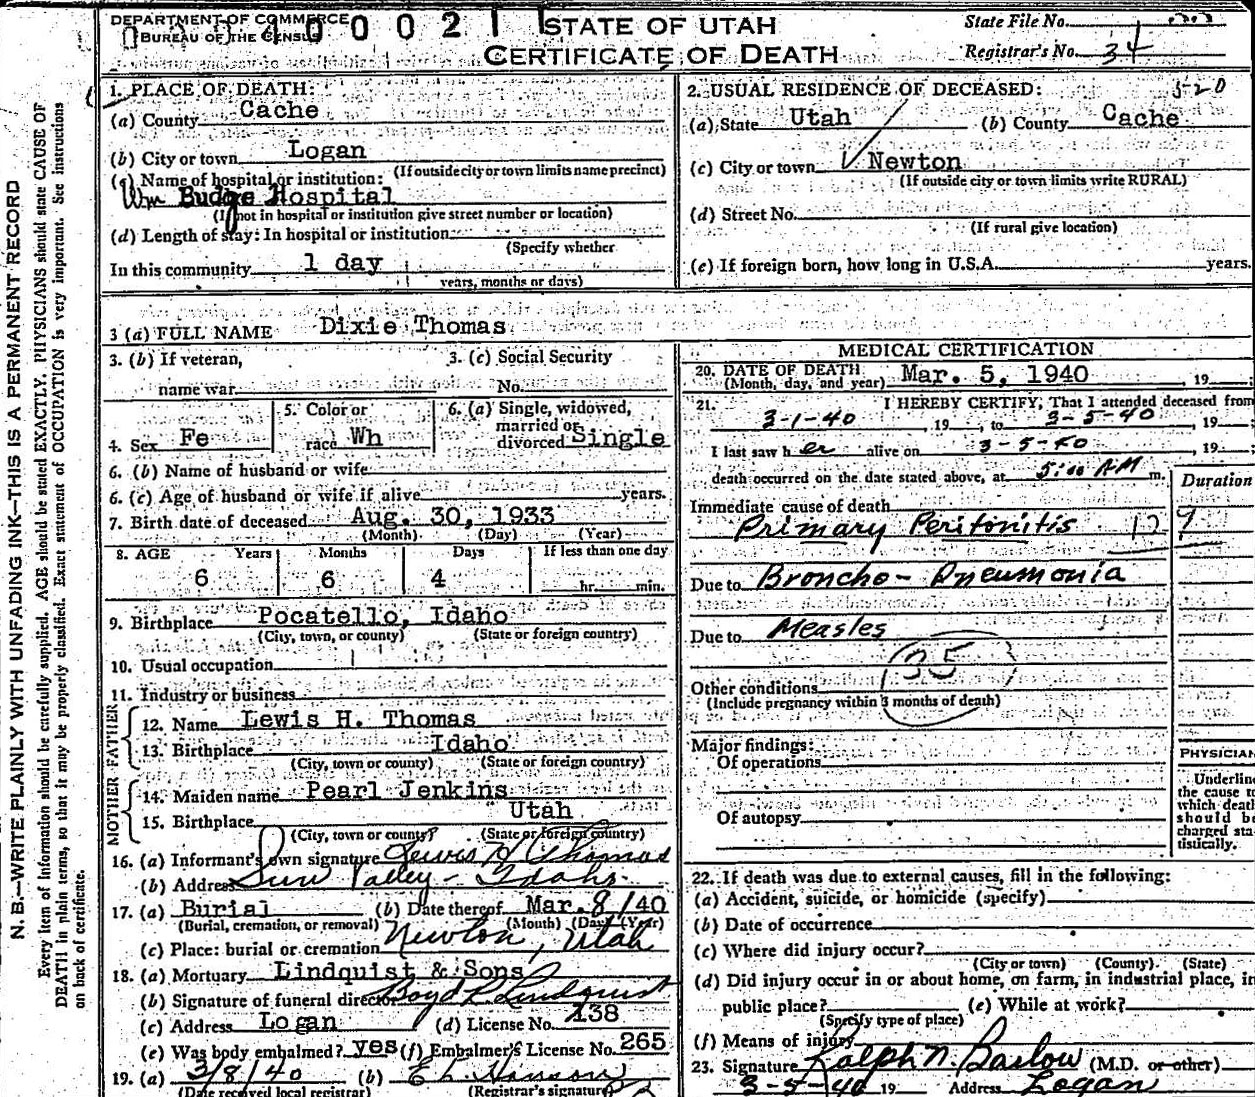 DEPARTMENT OF COMMERCE
BUREAU OF THE CENSUS
4 0 0 0 2 1
STATE OF UTAH
CERTIFICATE OF DEATH
State File No.
Registrar's No. 34
1. PLACE OF DEATH:
(a) County Cache
(b) City or town Logan
(If outside city or town limits name precinct)
(c) Name of hospital or institution:
Wm Budge Hospital
(If not in hospital or institution give street number or location)
(d) Length of stay: In hospital or institution
(Specify whether
In this community 1 day
years, months or days)
2. USUAL RESIDENCE OF DECEASED: 3-20
(a) State Utah (b) County Cache
(c) City or town Newton
(If outside city or town limits write RURAL)
(d) Street No.
(If rural give location)
(e) If foreign born, how long in U.S.A. years.
3 (a) FULL NAME Dixie Thomas
3. (b) If veteran, 3. (c) Social Security
name war No.
4. Sex Fe
5. Color or race Wh
6. (a) Single, widowed, married or divorced Single
6. (b) Name of husband or wife
6. (c) Age of husband or wife if alive years.
7. Birth date of deceased Aug. 30, 1933
(Month) (Day) (Year)
8. AGE Years Months Days If less than one day
6 6 4 hr. min.
9. Birthplace Pocatello, Idaho
(City, town, or county) (State or foreign country)
10. Usual occupation
11. Industry or business
FATHER
12. Name Lewis H. Thomas
13. Birthplace Idaho
(City, town or county) (State or foreign country)
MOTHER
14. Maiden name Pearl Jenkins
15. Birthplace Utah
(City, town or county) (State or foreign country)
16. (a) Informant's own signature Lewis H Thomas
(b) Address Sun Valley - Idaho
17. (a) Burial (b) Date thereof Mar. 8/40
(Burial, cremation, or removal) (Month) (Day) (Year)
(c) Place: burial or cremation Newton, Utah
18. (a) Mortuary Lindquist & Sons
(b) Signature of funeral director Boyd R Lindquist
(c) Address Logan (d) License No. 138
(e) Was body embalmed? yes (f) Embalmer's License No. 265
19. (a) 3/8/40 (b) E L Hanson
(Date received local registrar) (Registrar's signature)
MEDICAL CERTIFICATION
20. DATE OF DEATH
(Month, day, and year) Mar. 5, 1940, 19
21. I HEREBY CERTIFY, That I attended deceased from
3-1-40, 19, to 3-5-40, 19
I last saw her alive on 3-5-40, 19
death occurred on the date stated above, at 5:00 AM m.
Duration
Immediate cause of death
Primary Peritonitis
Due to Broncho-Pneumonia
Due to Measles
35
Other conditions
(Include pregnancy within 3 months of death)
Major findings:
Of operations
Of autopsy
PHYSICIAN
Underline
the cause to
which death
should be
charged sta-
tistically.
22. If death was due to external causes, fill in the following:
(a) Accident, suicide, or homicide (specify)
(b) Date of occurrence
(c) Where did injury occur?
(City or town) (County) (State)
(d) Did injury occur in or about home, on farm, in industrial place, in
public place? (e) While at work?
(Specify type of place)
(f) Means of injury
23. Signature Ralph N. Barlow (M.D. or other)
3-5-40 19 Address Logan
N. B.—WRITE PLAINLY WITH UNFADING INK—THIS IS A PERMANENT RECORD
Every item of information should be carefully supplied. AGE should be stated EXACTLY. PHYSICIANS should state CAUSE OF
DEATH in plain terms, so that it may be properly classified. Exact statement of OCCUPATION is very important. See instructions
on back of certificate.